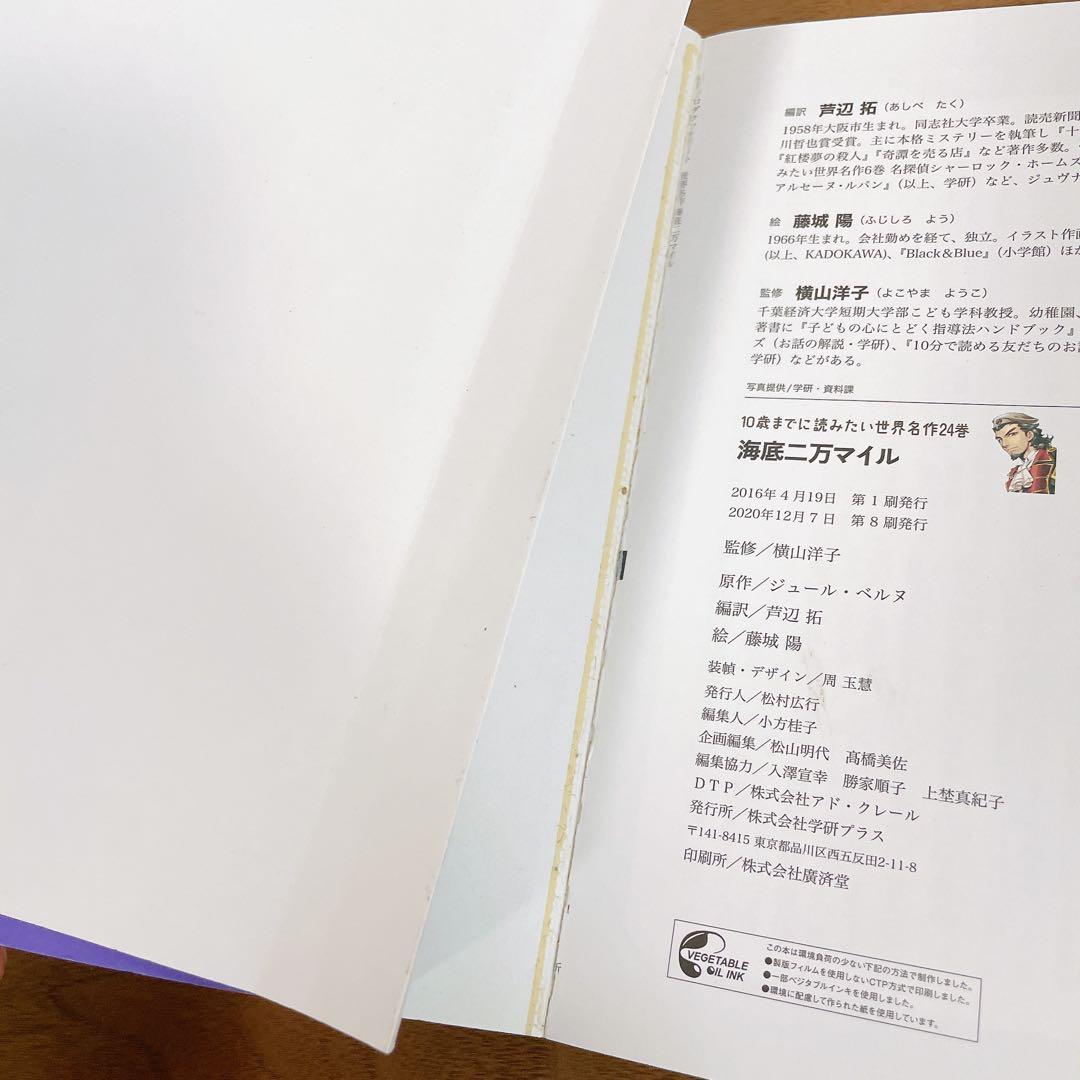 編訳 芦辺 拓(あしべ たく)
1958年大阪市生まれ。同志社大学卒業。読売新聞
川哲也賞受賞。主に本格ミステリーを執筆し『十
『紅楼夢の殺人』『奇譚を売る店』など著作多数。
みたい世界名作6巻 名探偵シャーロック・ホームズ
アルセーヌ・ルパン』(以上、学研)など、ジュヴナ
絵 藤城 陽(ふじしろ よう)
1966年生まれ。会社勤めを経て、独立。イラスト作画
(以上、KADOKAWA)、『Black&Blue』(小学館)ほか
監修 横山洋子(よこやま ようこ)
千葉経済大学短期大学部こども学科教授。幼稚園、
著書に『子どもの心にとどく指導法ハンドブック』
ズ(お話の解説・学研)、『10分で読める友だちのお話
学研)などがある。
写真提供/学研・資料課
10歳までに読みたい世界名作24巻
海底二万マイル
2016年4月19日 第1刷発行
2020年12月7日 第8刷発行
監修/横山洋子
原作/ジュール・ベルヌ
編訳/芦辺 拓
絵/藤城 陽
装幀・デザイン/周 玉慧
発行人/松村広行
編集人/小方桂子
企画編集/松山明代 髙橋美佐
編集協力/入澤宣幸 勝家順子 上埜真紀子
DTP/株式会社アド・クレール
発行所/株式会社学研プラス
〒141-8415 東京都品川区西五反田2-11-8
印刷所/株式会社廣済堂
VEGETABLE
OIL INK
この本は環境負荷の少ない下記の方法で制作しました。
●製版フィルムを使用しないCTP方式で印刷しました。
●一部ベジタブルインキを使用しました。
●環境に配慮して作られた紙を使用しています。
海底二万マイル